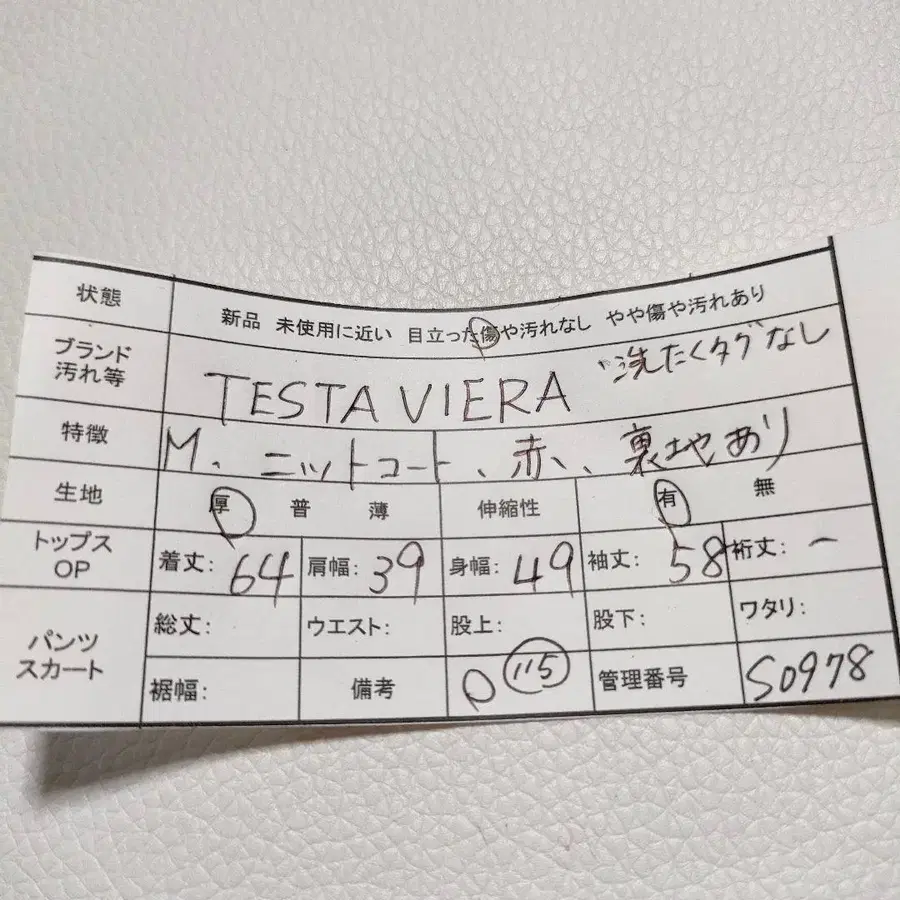 状態 新品 未使用に近い 目立った傷や汚れなし やや傷や汚れあり
ブランド 汚れ等 TESTA VIERA 洗たくタグなし
特徴 M、ニットコート、赤、裏地あり
生地 厚 普 薄 伸縮性 有 無
トップス OP 着丈: 64 肩幅: 39 身幅: 49 袖丈: 58 裄丈: ー
パンツ スカート 総丈: ウエスト: 股上: 股下: ワタリ:
裾幅: 備考 115 管理番号 S0978